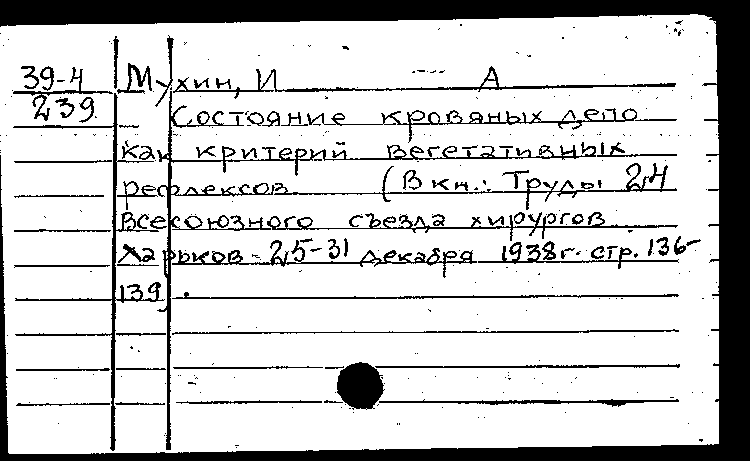 39-4 Мухин, И А
239 Состояние кровяных депо
как критерий вегетативных
рефлексов. (В кн.: Труды 24
Всесоюзного съезда хирургов
Харьков - 25-31 декабря 1938г. стр. 136-
139).